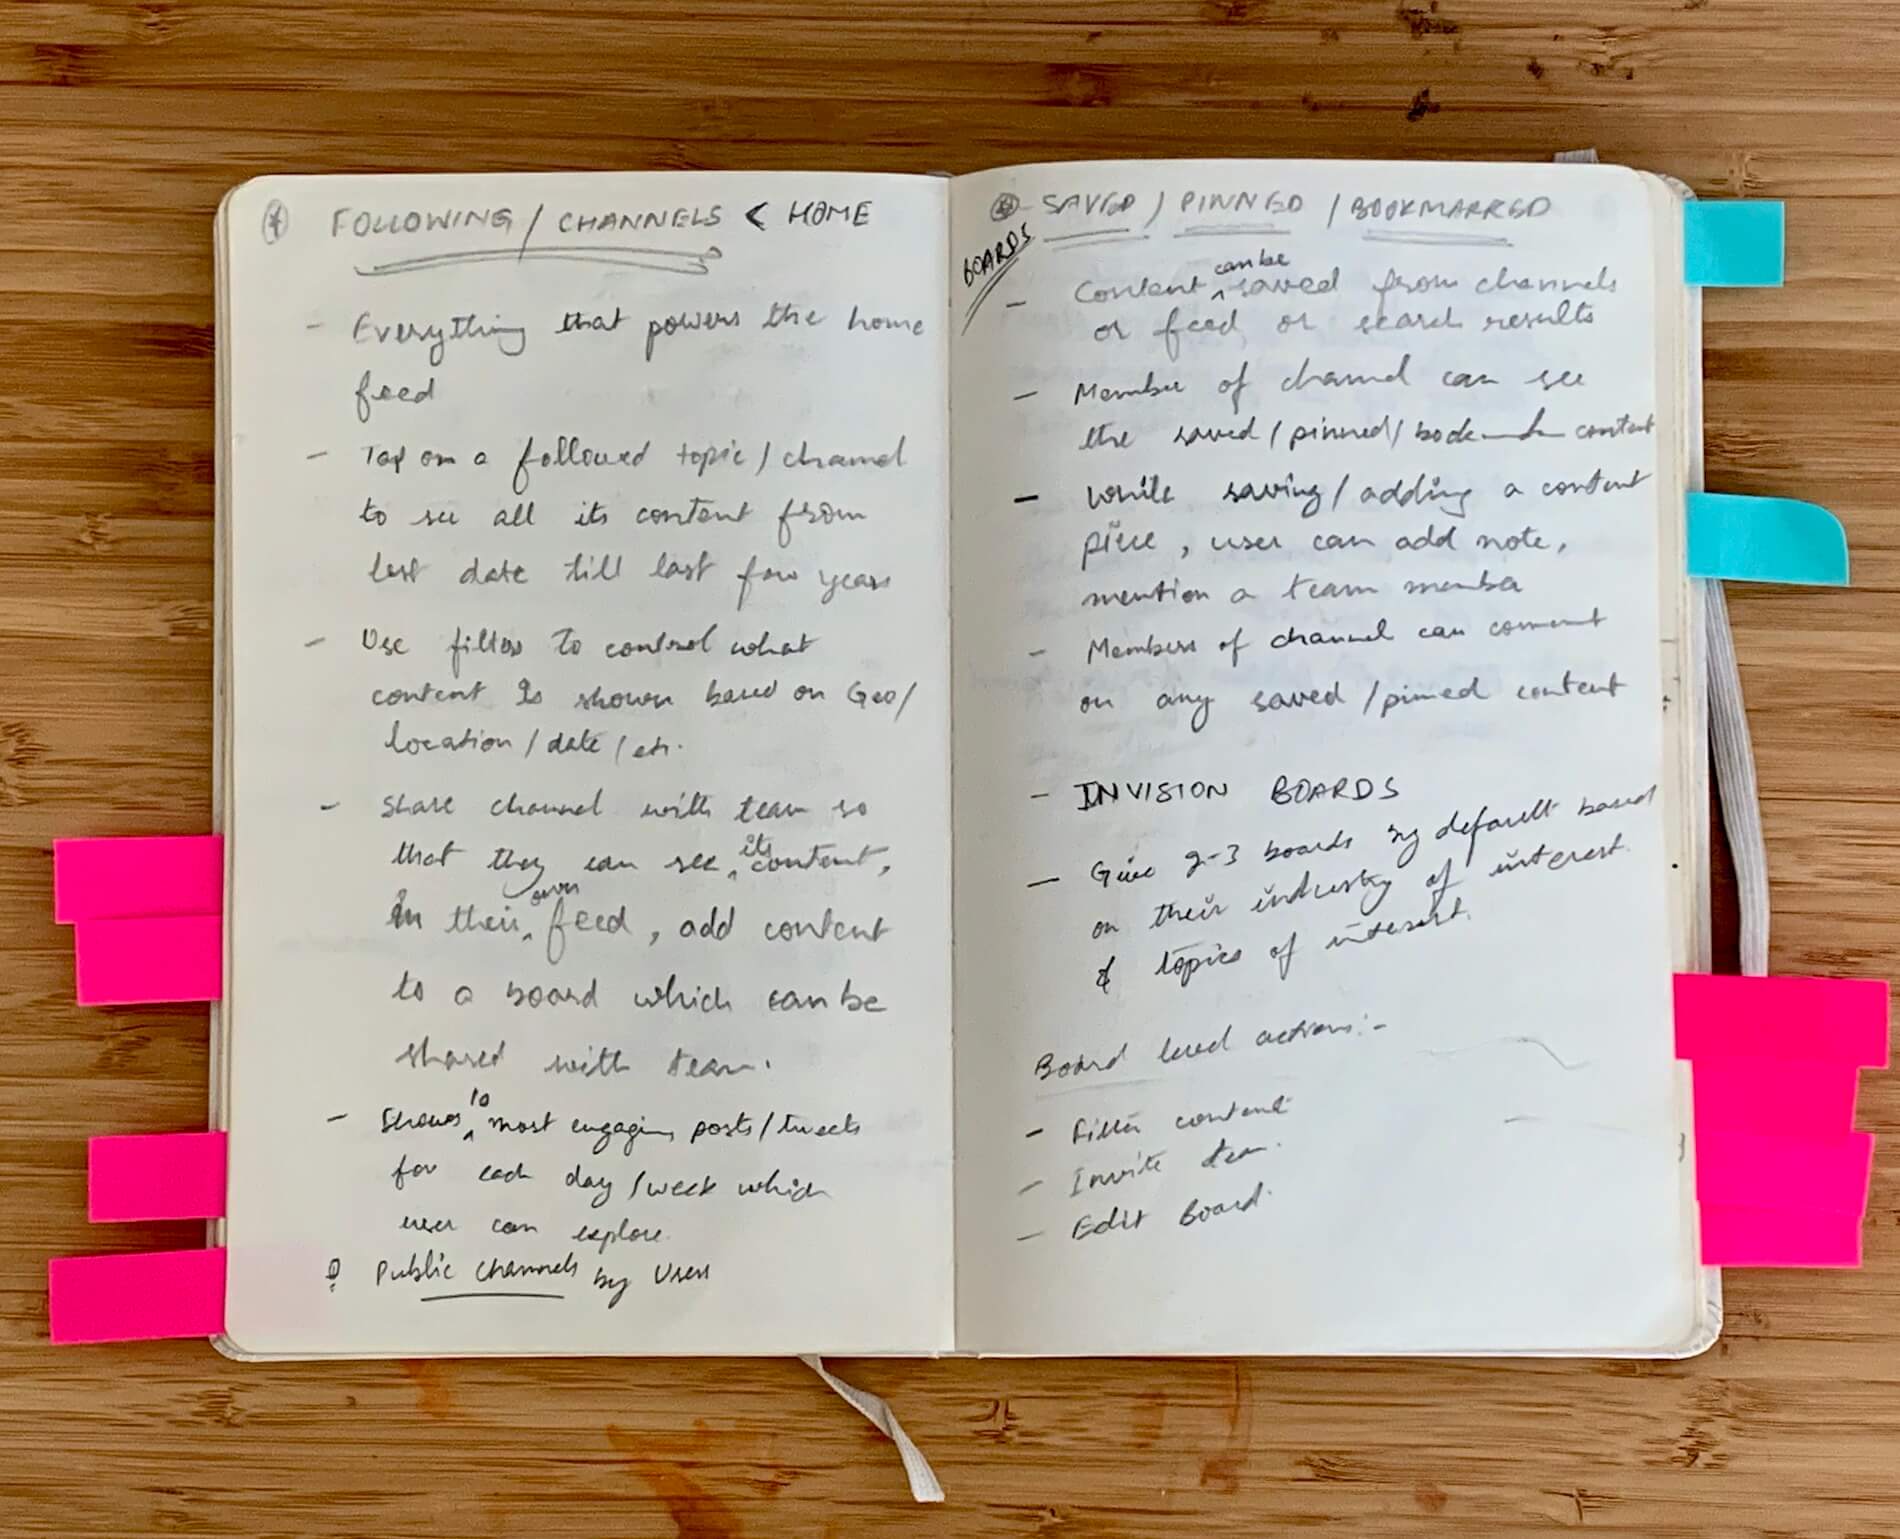 FOLLOWING / CHANNELS < HOME
- Everything that powers the home
feed
- Tap on a followed topic / channel
to see all its content from
last date till last few years
- Use filters to control what
content is shown based on Geo/
location / date / etc.
- Share channel with team so
that they can see its content,
in their own feed, add content
to a board which can be
shared with team.
- Shows 10 most engaging posts / tweets
for each day / week which
user can explore.
Public channels by Users
SAVED / PINNED / BOOKMARKED
BOARDS
- Content can be saved from channels
or feed or search results
- Member of channel can see
the saved / pinned / content
- While saving / adding a content
piece, user can add note,
mention a team member
- Members of channel can comment
on any saved / pinned content
- INVISION BOARDS
- Give 2-3 boards by default based
on their industry of interest
& topics of interest.
Board level actions:-
- Filter content
- Invite team.
- Edit Board.